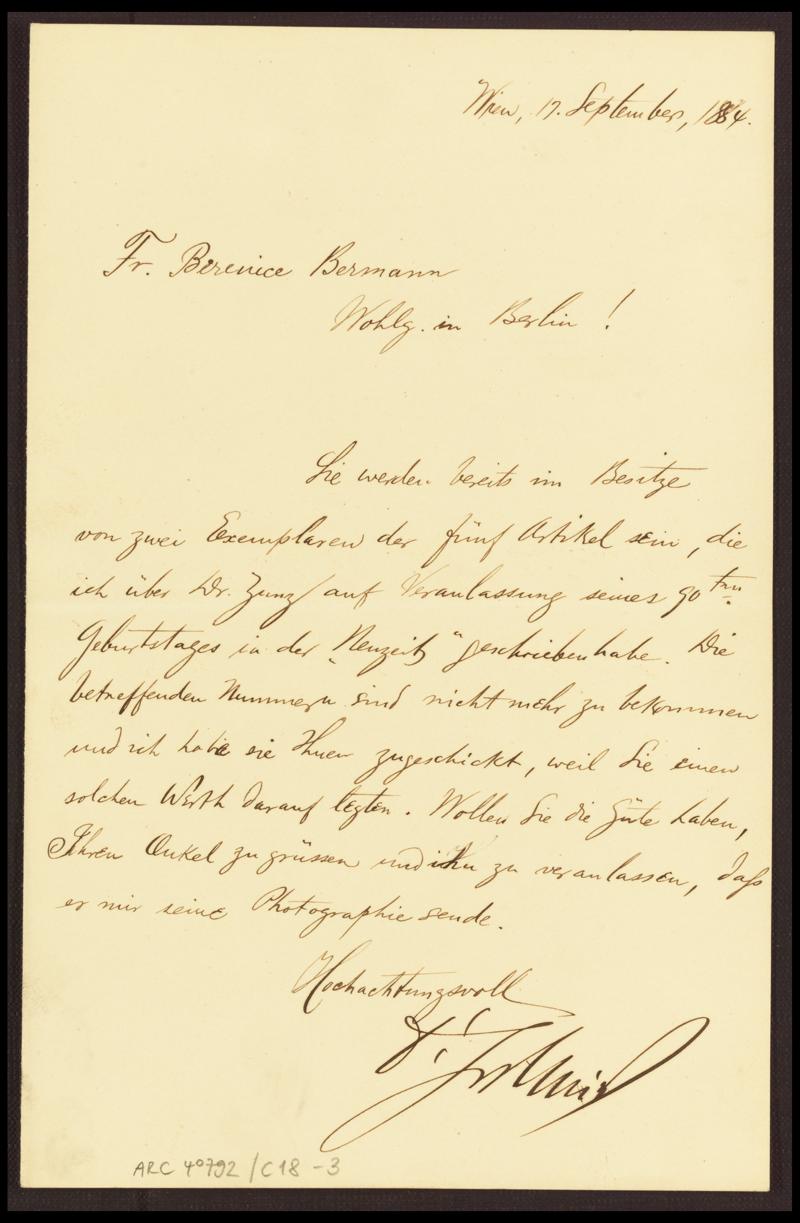 Wien, 17. September, 1884.
Fr. Berenice Bermann
Wohlg. in Berlin !
Sie werden bereits im Besitze
von zwei Exemplaren der fünf Artikel sein, die
ich über Dr. Zunz auf Veranlassung seines 90ten
Geburtstages in der „Neuzeit" geschrieben habe. Die
betreffenden Nummern sind nicht mehr zu bekommen
und ich habe sie Ihnen zugeschickt, weil Sie einen
solchen Werth darauf legten. Wollen Sie die Güte haben,
Ihren Onkel zu grüssen und ihn zu veranlassen, daß
er mir seine Photographie sende.
Hochachtungsvoll
ARC 4°792 / C18 - 3